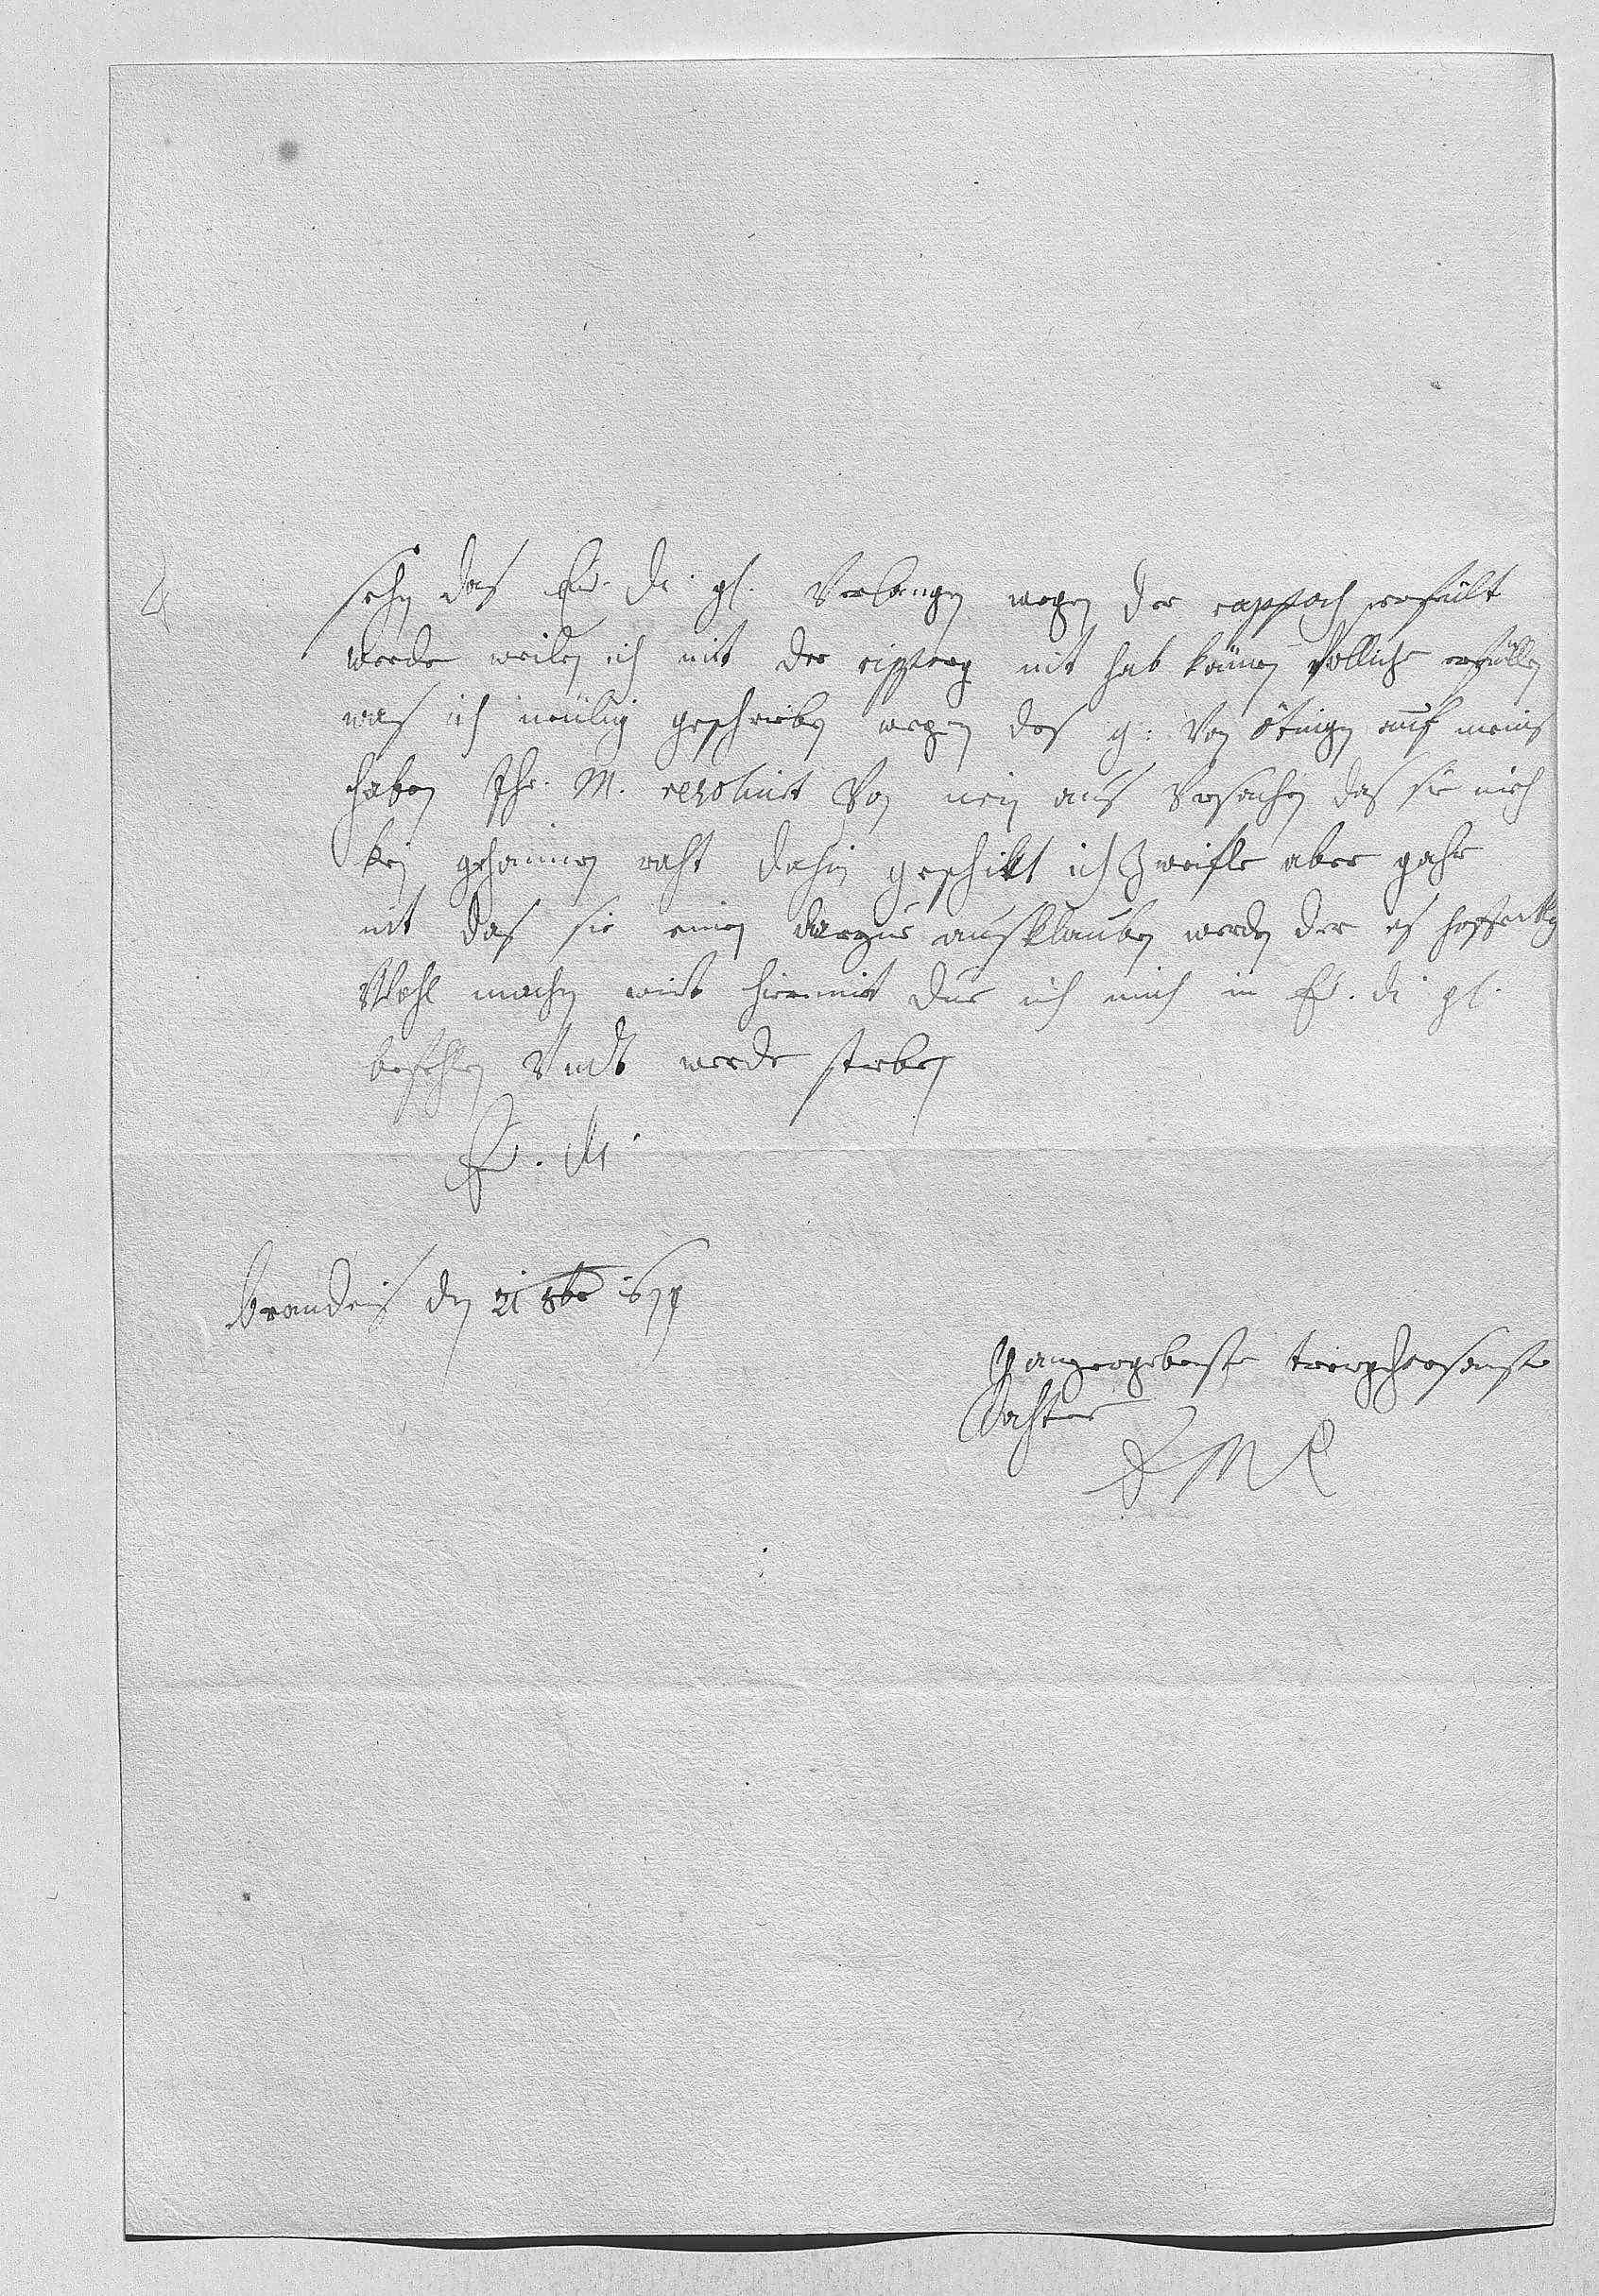 sehn das E. Di. gl. verlangen wegen der rappach erfült
werde weilen ich mit der eipperg nit hab können völlich erfüllen
was ich neülig geschrieben wegen des g: von ötingen auf meins
haben Ihr. M. resolvirt von nein aus ursachen das sie nieh
kein gehaimen raht dahin geschikt ich zweifle aber gahr
nit das sie einen darzue ausklauben werden der es hoffentlich
wohl machen wirt hiermit due ich mich in E. Di gl.
befehlen undt werde sterben
E. Di
brandeis den 21 8br 1679
ganzergebenste treügehorsamste
dohter
E M E